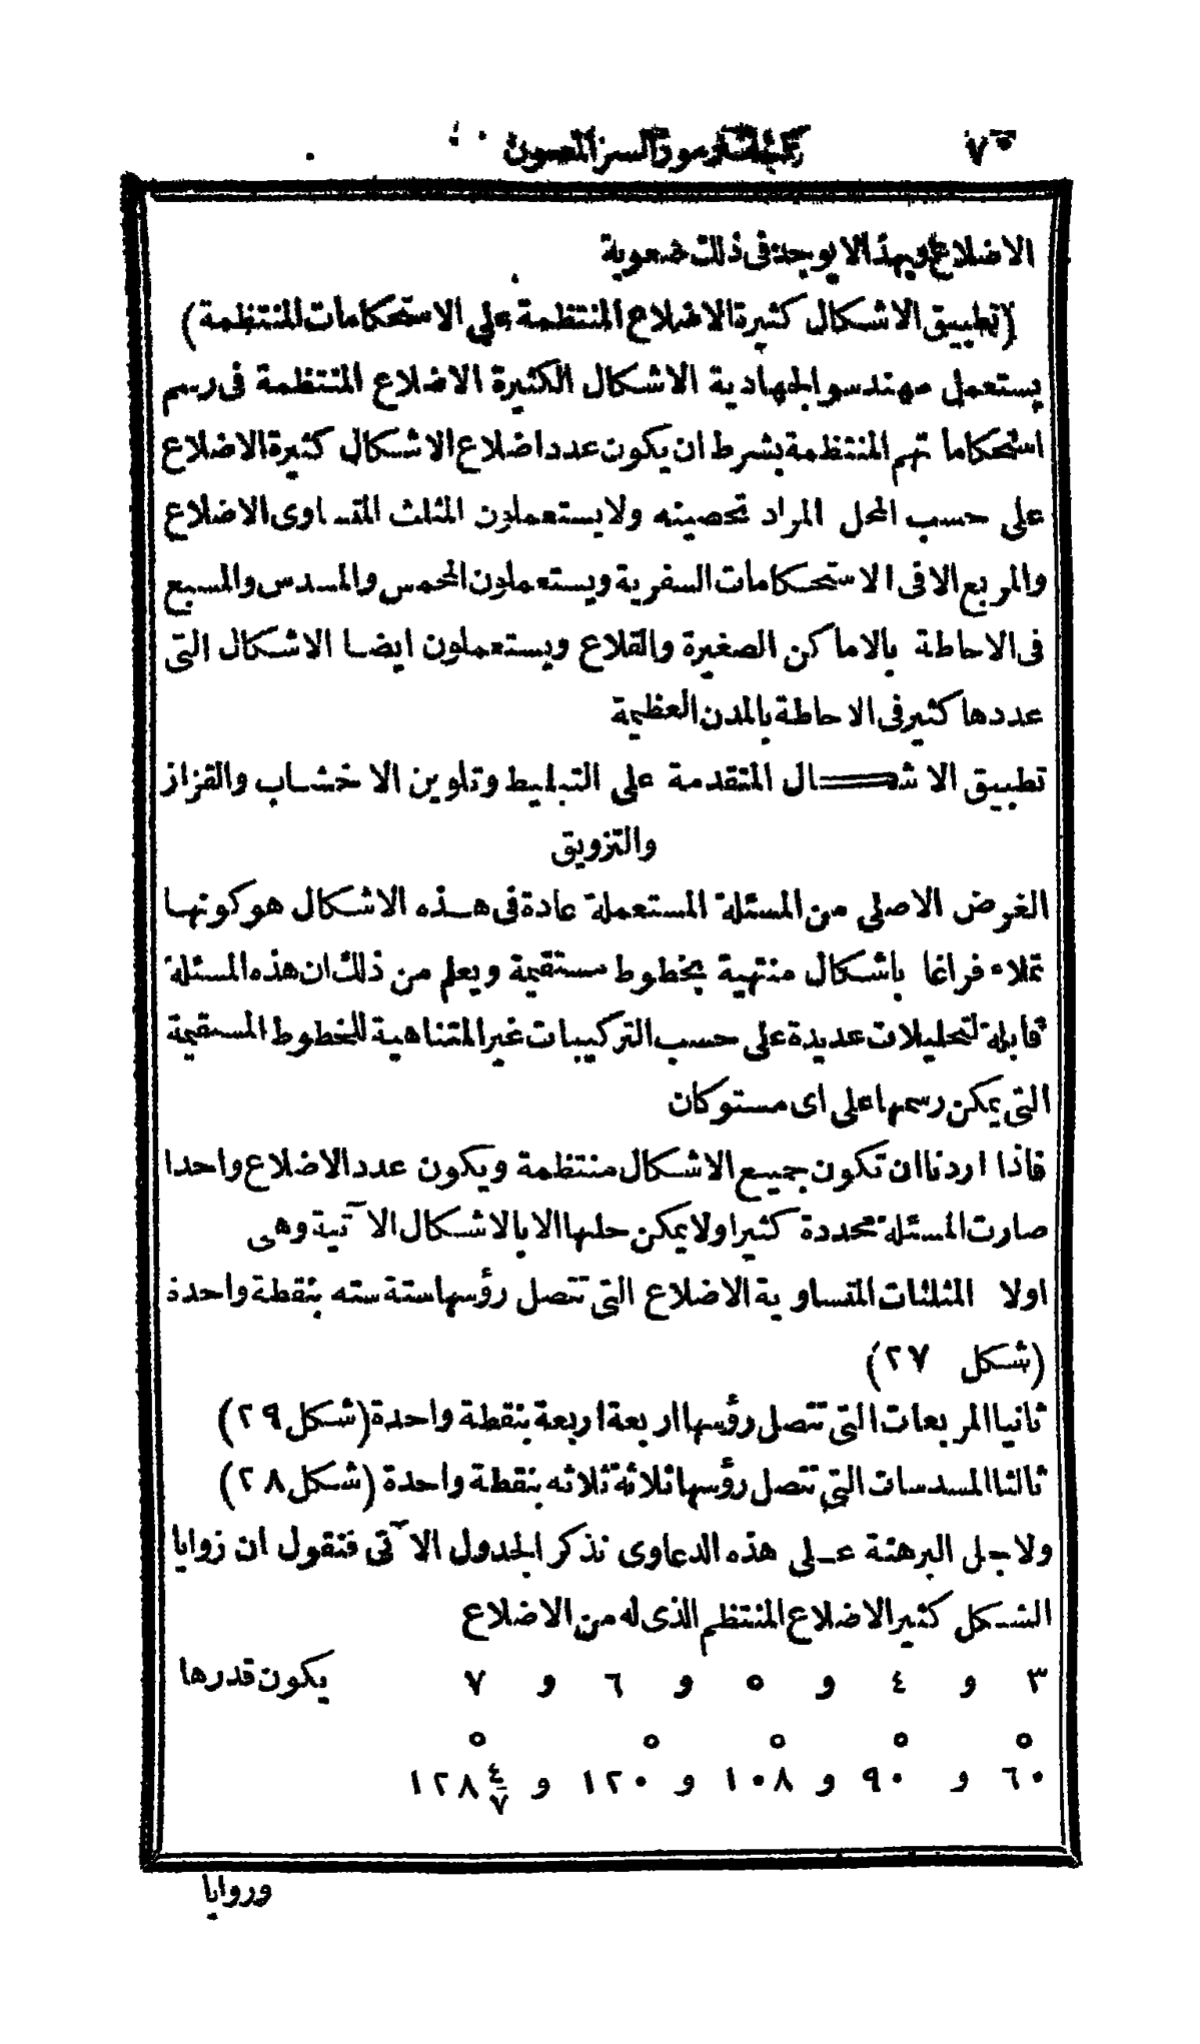 كشف رموز السر المصون
الاضلاع وبهذا لا يوجد فى ذلك صعوبة
(تطبيق الاشكال كثيرة الاضلاع المنتظمة على الاستحكامات المنتظمة)
يستعمل مهندسو الجهادية الاشكال الكثيرة الاضلاع المنتظمة فى رسم
استحكاماتهم المنتظمة بشرط ان يكون عدد اضلاع الاشكال كثيرة الاضلاع
على حسب المحل المراد تحصينه ولا يستعملون المثلث المتساوى الاضلاع
والمربع الا فى الاستحكامات السفرية ويستعملون المخمس والمسدس والمسبع
فى الاحاطة بالاماكن الصغيرة والقلاع ويستعملون ايضا الاشكال التى
عددها كثير فى الاحاطة بالمدن العظيمة
تطبيق الاشكال المتقدمة على التبليط وتلوين الاخشاب والقزاز
والتزويق
الغرض الاصلى من المسئلة المستعملة عادة فى هذه الاشكال هو كونها
تملاء فراغا باشكال منتهية بخطوط مستقيمة ويعلم من ذلك ان هذه المسئلة
قابلة لتحليلات عديدة على حسب التركيبات غير المتناهية للخطوط المستقيمة
التى يمكن رسمها على اى مستو كان
فاذا اردنا ان تكون جميع الاشكال منتظمة ويكون عدد الاضلاع واحدا
صارت المسئلة محددة كثيرا ولا يمكن حلها الا بالاشكال الآتية وهى
اولا المثلثات المتساوية الاضلاع التى تتصل رؤسها ستة ستة بنقطة واحدة
(شكل ٢٧)
ثانيا المربعات التى تتصل رؤسها اربعة اربعة بنقطة واحدة (شكل ٢٩)
ثالثا المسدسات التى تتصل رؤسها ثلاثة ثلاثه بنقطة واحدة (شكل ٢٨)
ولاجل البرهنة على هذه الدعاوى نذكر الجدول الآتى فنقول ان زوايا
الشكل كثير الاضلاع المنتظم الذى له من الاضلاع
٣ و ٤ و ٥ و ٦ و ٧ يكون قدرها
٦٠° و ٩٠° و ١٠٨° و ١٢٠° و ١٢٨° ٤/٧
وروايا